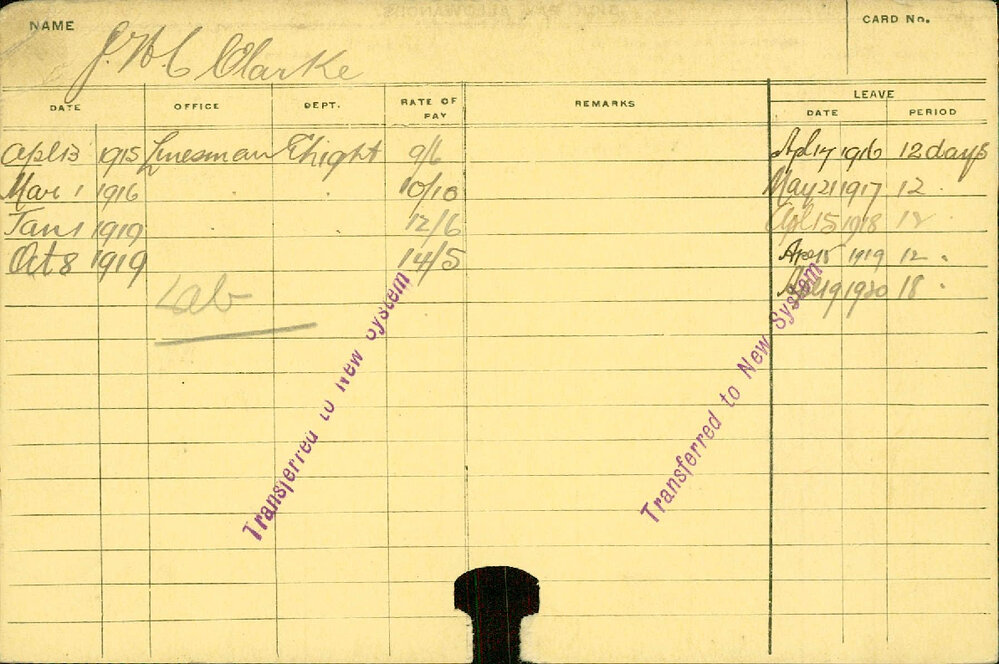 NAME
CARD No.
J. H. C Clarke
LEAVE
DATE OFFICE DEPT. RATE OF PAY REMARKS DATE PERIOD
Apl 13 1915 Linesman Elight 9/6 Apl 17 1916 12 days
Mar 1 1916 " " 10/10 May 21 1917 12 "
Jan 1 1919 12/6 Apl 15 1918 12
Oct 8 1919 14/5 Apr 15 1919 12 "
Lab 19 1920 18 "
Transferred to New System
Transferred to New System